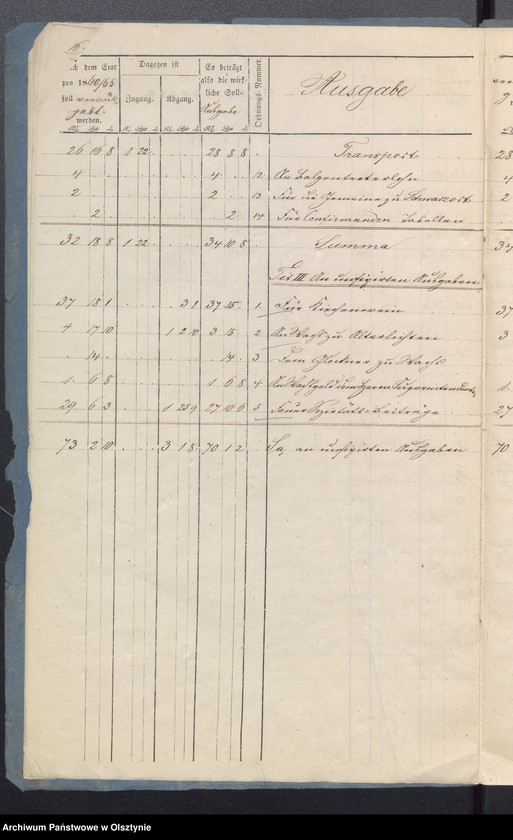 16.
Nach dem Etat pro 1860/65 soll verausgabt werden.
Dagegen ist
Zugang. Abgang.
Es beträgt also die wirkliche Soll-Ausgabe
Ordnungs-Nummer.
Ausgabe
26 16 8 1 22 . . . . 28 8 8 . Transport
4 . . . . . . . . 4 . . 12 An Balgentreterlohn
2 . . . . . . . . 2 . . 13 Für die Gemeine zu
. 2 . . . . . . . . 2 . 14 Für Confirmanden Tabellen
32 18 8 1 22 . . . . 34 10 8 Summa
Tit III. An unfixirten Ausgaben.
37 18 1 . . . . 3 1 37 15 . 1. Für Kirchenwein
4 17 10 . . . 1 2 10 3 15 . 2 An Wachs zu Altarlichten
. 14 . . . . . . . . 14 . 3 Dem Glöckner zu Wachs
1 6 8 . . . . . . 1 6 8 4
29 6 3 . . . 1 25 9 27 10 6 5 Feuer Sozietäts-Beiträge
73 2 10 . . . 3 1 8 70 1 2 Sa. an unfixirten Ausgaben
28
4
2
34
37
3
1
27
70
Archiwum Państwowe w Olsztynie